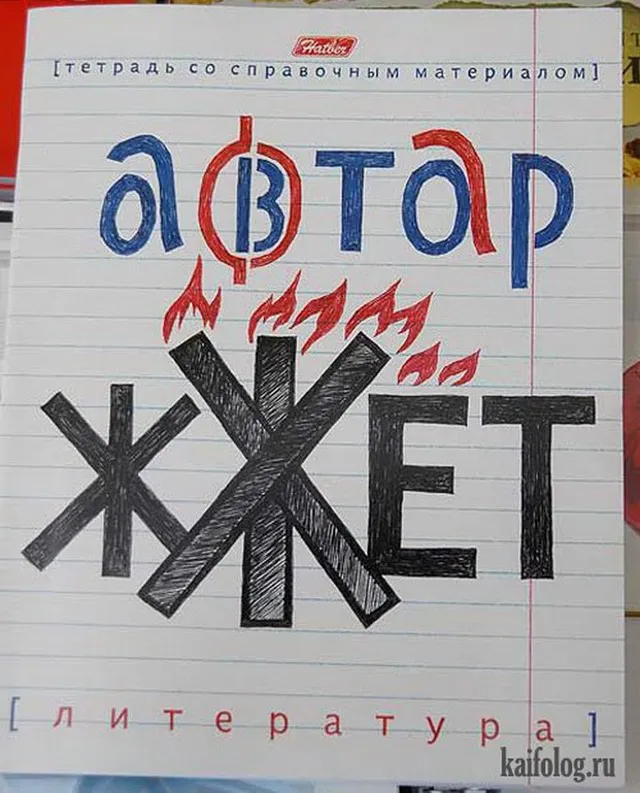 Hatber
[тетрадь со справочным материалом]
автар
жжёт
[литература]
kaifolog.ru